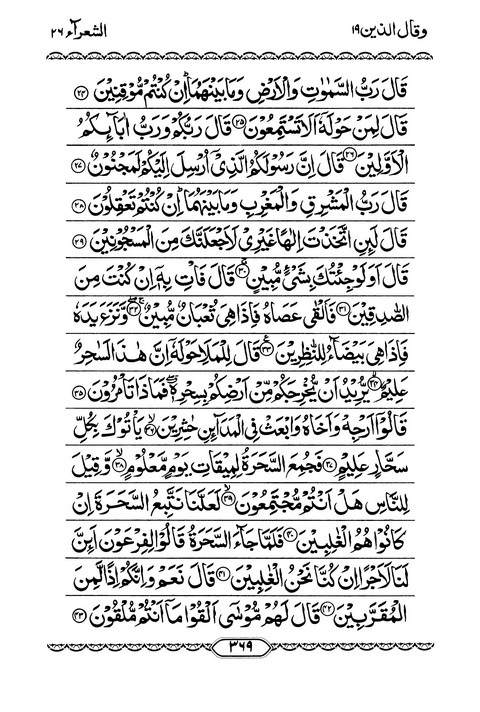 وقال الذين ١٩ الشعرآء ٢٦
قَالَ رَبُّ السَّمٰوٰتِ وَالْاَرْضِ وَمَا بَيْنَهُمَا ؕ اِنْ كُنْتُمْ مُّوْقِنِيْنَ ﴿۲۴﴾
قَالَ لِمَنْ حَوْلَهٗۤ اَلَا تَسْتَمِعُوْنَ ﴿۲۵﴾ قَالَ رَبُّكُمْ وَرَبُّ اٰبَآئِكُمُ
الْاَوَّلِيْنَ ﴿۲۶﴾ قَالَ اِنَّ رَسُوْلَكُمُ الَّذِيْۤ اُرْسِلَ اِلَيْكُمْ لَمَجْنُوْنٌ ﴿۲۷﴾
قَالَ رَبُّ الْمَشْرِقِ وَالْمَغْرِبِ وَمَا بَيْنَهُمَا ؕ اِنْ كُنْتُمْ تَعْقِلُوْنَ ﴿۲۸﴾
قَالَ لَئِنِ اتَّخَذْتَ اِلٰهًا غَيْرِيْ لَاَجْعَلَنَّكَ مِنَ الْمَسْجُوْنِيْنَ ﴿۲۹﴾
قَالَ اَوَلَوْ جِئْتُكَ بِشَيْءٍ مُّبِيْنٍ ﴿۳۰﴾ قَالَ فَاْتِ بِهٖۤ اِنْ كُنْتَ مِنَ
الصّٰدِقِيْنَ ﴿۳۱﴾ فَاَلْقٰى عَصَاهُ فَاِذَا هِيَ ثُعْبَانٌ مُّبِيْنٌ ﴿۳۲﴾ وَّنَزَعَ يَدَهٗ
فَاِذَا هِيَ بَيْضَآءُ لِلنّٰظِرِيْنَ ﴿۳۳﴾ قَالَ لِلْمَلَاِ حَوْلَهٗۤ اِنَّ هٰذَا لَسٰحِرٌ
عَلِيْمٌ ﴿۳۴﴾ يُّرِيْدُ اَنْ يُّخْرِجَكُمْ مِّنْ اَرْضِكُمْ بِسِحْرِهٖ فَمَاذَا تَاْمُرُوْنَ ﴿۳۵﴾
قَالُوْۤا اَرْجِهْ وَاَخَاهُ وَابْعَثْ فِي الْمَدَآئِنِ حٰشِرِيْنَ ﴿۳۶﴾ يَاْتُوْكَ بِكُلِّ
سَحَّارٍ عَلِيْمٍ ﴿۳۷﴾ فَجُمِعَ السَّحَرَةُ لِمِيْقَاتِ يَوْمٍ مَّعْلُوْمٍ ﴿۳۸﴾ وَّقِيْلَ
لِلنَّاسِ هَلْ اَنْتُمْ مُّجْتَمِعُوْنَ ﴿۳۹﴾ لَعَلَّنَا نَتَّبِعُ السَّحَرَةَ اِنْ
كَانُوْا هُمُ الْغٰلِبِيْنَ ﴿۴۰﴾ فَلَمَّا جَآءَ السَّحَرَةُ قَالُوْا لِفِرْعَوْنَ اَئِنَّ
لَنَا لَاَجْرًا اِنْ كُنَّا نَحْنُ الْغٰلِبِيْنَ ﴿۴۱﴾ قَالَ نَعَمْ وَاِنَّكُمْ اِذًا لَّمِنَ
الْمُقَرَّبِيْنَ ﴿۴۲﴾ قَالَ لَهُمْ مُّوْسٰۤى اَلْقُوْا مَاۤ اَنْتُمْ مُّلْقُوْنَ ﴿۴۳﴾
٣٦٩